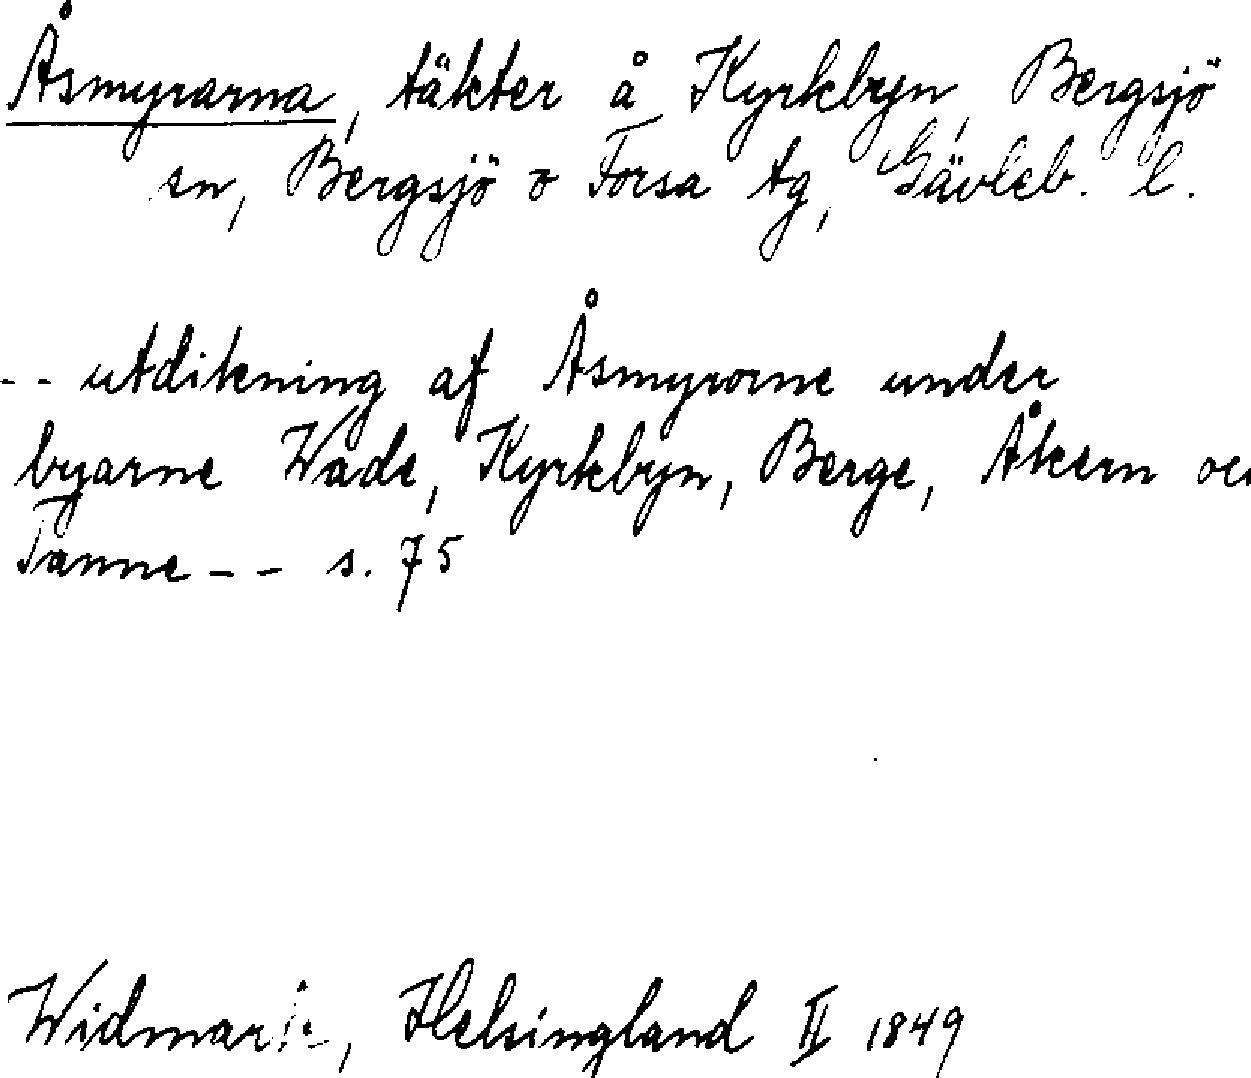 Åsmyrarna, täkter å Kyrkbyn, Bergsjö
sn, Bergsjö o Forsa tg, Gävleb. l.
-- utdikning af Åsmyrorne under
byarne Wade, Kyrkbyn, Berge, Åkern oc
Tanne -- s. 75
Widmark, Helsingland II 1849